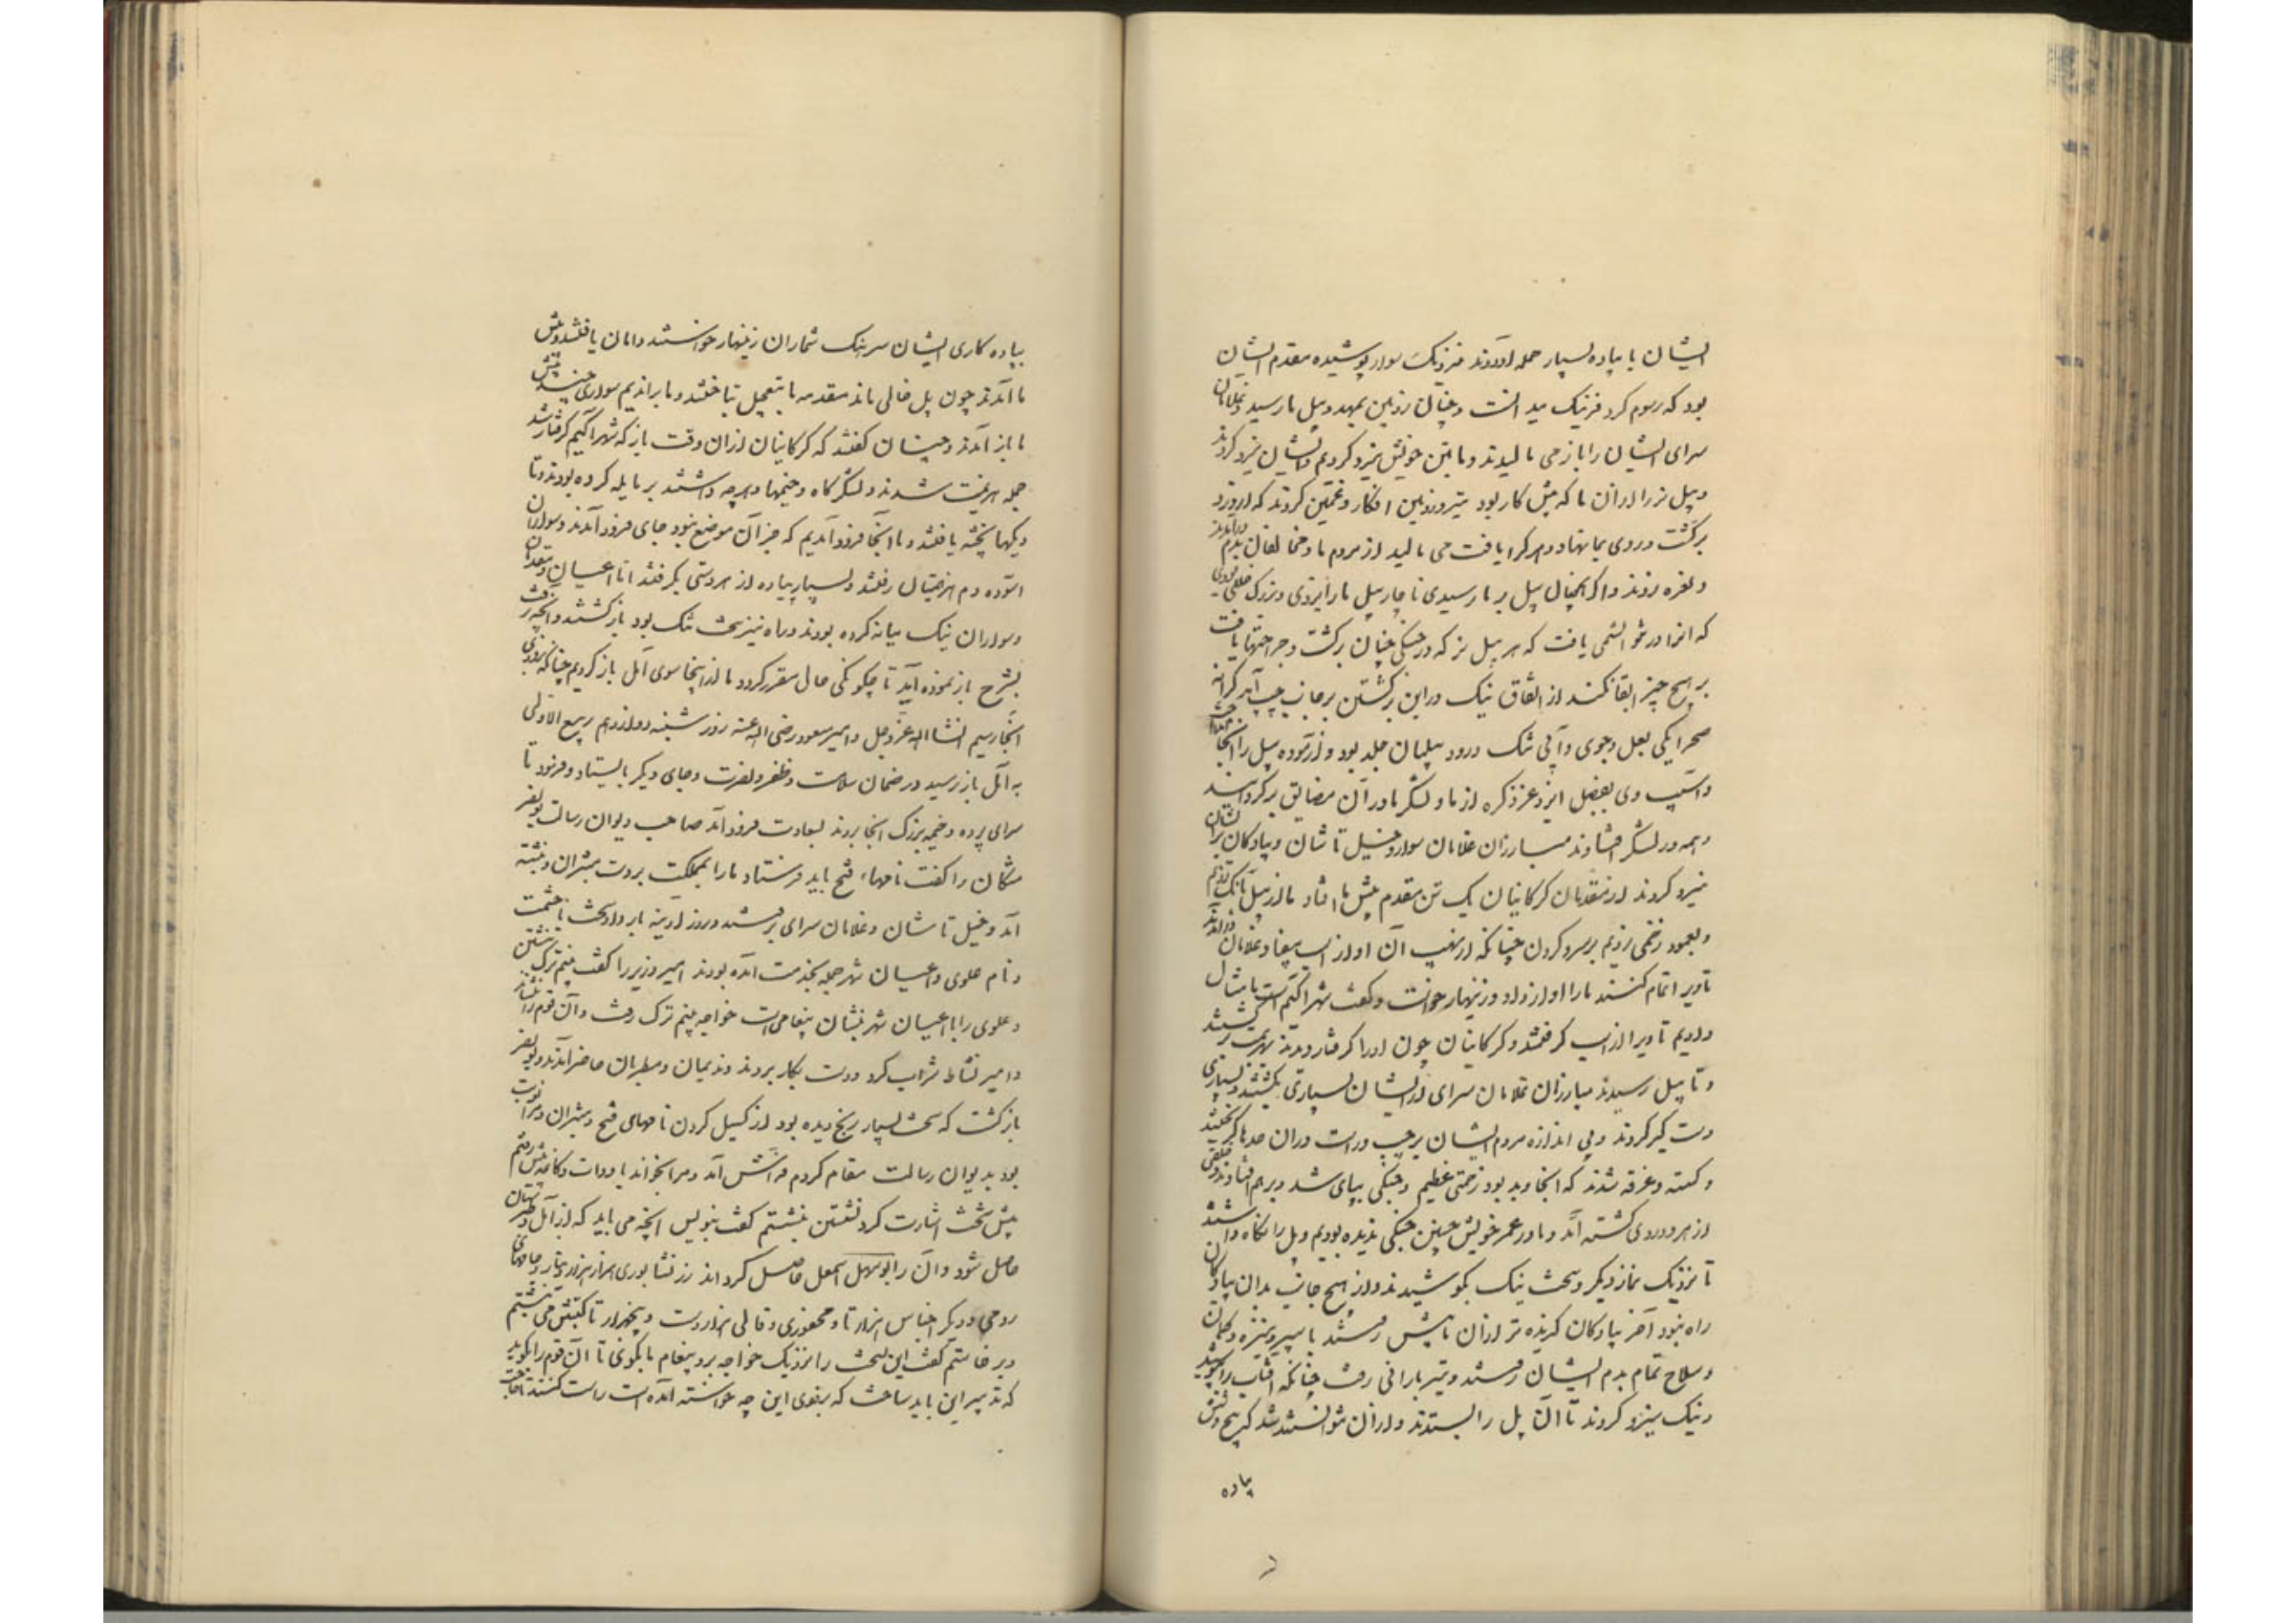 ایشان با پیاده بسیار حمله آوردند فزونیک سوار پوشیده مقدم ایشان
بود که رسوم کرد فر نیک میدانست و چنان زوبین بمهد و پیل ما رسید و غلامان
سرای ایشان را باز می مالیدند و ما بتن خویش نیرو کردیم و ایشان نیرو کردند
و پیل نر را از آن ما که پیش کار بود بتیر و زوبین افکار و غمگین کردند که از درد
برگشت و روی بما نهاد و هر کرا یافت می مالید از مردم ما و مخالفان بدم درآمدند
و نعره زدند و اگر همچنان پیل بر ما رسیدی ناچار پیل ما را بزدی و بزرگ خللی بودی
که آنرا در نتوانستمی یافت که هر پیل نر که در جنگی چنان برگشت و جراحتها یافت
بر هیچ چیز ابقا نکند از اتفاق نیک در این برگشتن بر جانب چپ آمد کرانه
صحرا یکی لعل و جوی و آبی تنک درو و پیلبان جلد بود و آزموده پیل را آنجا
و آسیب وی بفضل ایزد عز ذکره از ما و لشکر ما در آن مضایق برگردانید
و همه در لشکر افتادند مبارزان غلامان سوار و خیل تاشان و پیادگان
نیرو کردند از مقدمان گرگانیان یک تن مقدم پیش ما افتاد ما از پیل
و بعمود زخمی زدیم بر سر و گردن چنانکه از نهیب آن او از اسب بیفتاد و غلامان درآمدند
تا ویرا تمام کنند ما را آواز داد و زینهار خواست و گفت شهرآکیم است ما مثال
دادیم تا ویرا از اسب گرفتند و گرگانیان چون او را گرفتار دیدند بهزیمت گشتند
و تا پیل رسیدند مبارزان غلامان سرای از ایشان بسیاری بکشتند و بسیاری
دستگیر کردند و بی اندازه مردم ایشان بر چپ و راست در آن حدها گریختند
و کشته و غرقه شدند که آنجا وبد بود زحمتی عظیم و جنگی بپای شد و بر هم افتادند و خلقی
از هر دو روی کشته آمد و ما در عمر خویش چنین جنگی ندیده بودیم و پل را نگاه داشتند
تا نزدیک نماز دیگر و سخت نیک بکوشیدند و از هیچ جانب بدان پیادگان
راه نبود آخر پیادگان گزیده تر از آن ما پیش رفتند با سپر و نیزه و کمان
و سلاح تمام بدم ایشان رفتند و تیر بارانی رفت چنانکه آفتاب را بپوشید
و نیک نیرو کردند تا آن پل را بستدند و از آن توانستند شد که پنج و شش
پیاده
پیاده کاری ایشان سرهنگ شماران زینهار خواستند و امان یافتند و پیش
ما آمدند چون پل خالی ماند مقدمه ما بتعجیل بتاختند و ما براندیم سواری چند پیش
ما باز آمدند و چنان گفتند که گرگانیان از آن وقت باز که شهرآکیم گرفتار شد
جمله هزیمت شدند و لشکرگاه و خیمها و هر چه داشتند بر ما یله کرده بودند و تا
دیگها پخته یافتند و ما آنجا فرود آمدیم که جز آن موضع نبود جای فرود آمدند و سواران
آسوده دم هزیمتیان رفتند و بسیار پیاده از هر دستی بگرفتند اما اعیان و مقدمان
و سواران نیک میانه کرده بودند و راه نیز سخت تنک بود بازگشتند و آنچه رفت
بشرح باز نموده آید تا چگونگی حال مقرر گردد و ما از اینجا سوی آمل باز گردیم چنانکه بزودی
آنجا رسیم انشاالله عز و جل و امیر مسعود رضی الله عنه روز شنبه دوازدهم ربیع الاولی
به آمل باز رسید در ضمان سلامت و ظفر و نصرت و جای دیگر بایستاد و فرمود تا
سرای پرده و خیمه بزرگ آنجا بردند بسعادت فرود آمد صاحب دیوان رسالت بونصر
مشکان را گفت نامهاء فتح باید فرستاد ما را بمملکت بر دست مبشران و نبشته
آمد و خیل تاشان و غلامان سرای برفتند و روز آدینه بار داد سخت با حشمت
و نام علوی و اعیان شهر جمله بخدمت آمده بودند امیر وزیر را گفت بنیم ترک بنشین
و علوی را با اعیان شهر بنشان پیغامی است خواجه بنیم ترک رفت و آن قوم را بنشاند
و امیر نشاط شراب کرد و دست بکار بردند و ندیمان و مطربان حاضر آمدند و بونصر
بازگشت که سخت بسیار رنج دیده بود از گسیل کردن نامهای فتح و مبشران و مرا نوبت
بود بدیوان رسالت مقام کردم فراش آمد و مرا بخواند با دوات و کاغذ پیش رفتم
پیش تخت اشارت کرد نشستن بنشستم گفت بنویس آنچه می باید که از آمل و طبرستان
حاصل شود و آن را بوسهل اسمعیل حاصل گرداند زر نشابوری هزار هزار دینار و جامهای
رومی و دیگر اجناس هزار تا و محفوری و قالی هزار دست و پنجهزار تا کیش می نبشتم
و برخاستم گفت این نسخت را نزدیک خواجه برو پیغام ما بگوی تا آن قوم را بگوید
که تدبیر این باید ساخت که بزودی این چه خواسته آمده است راست کنند تا حاجت